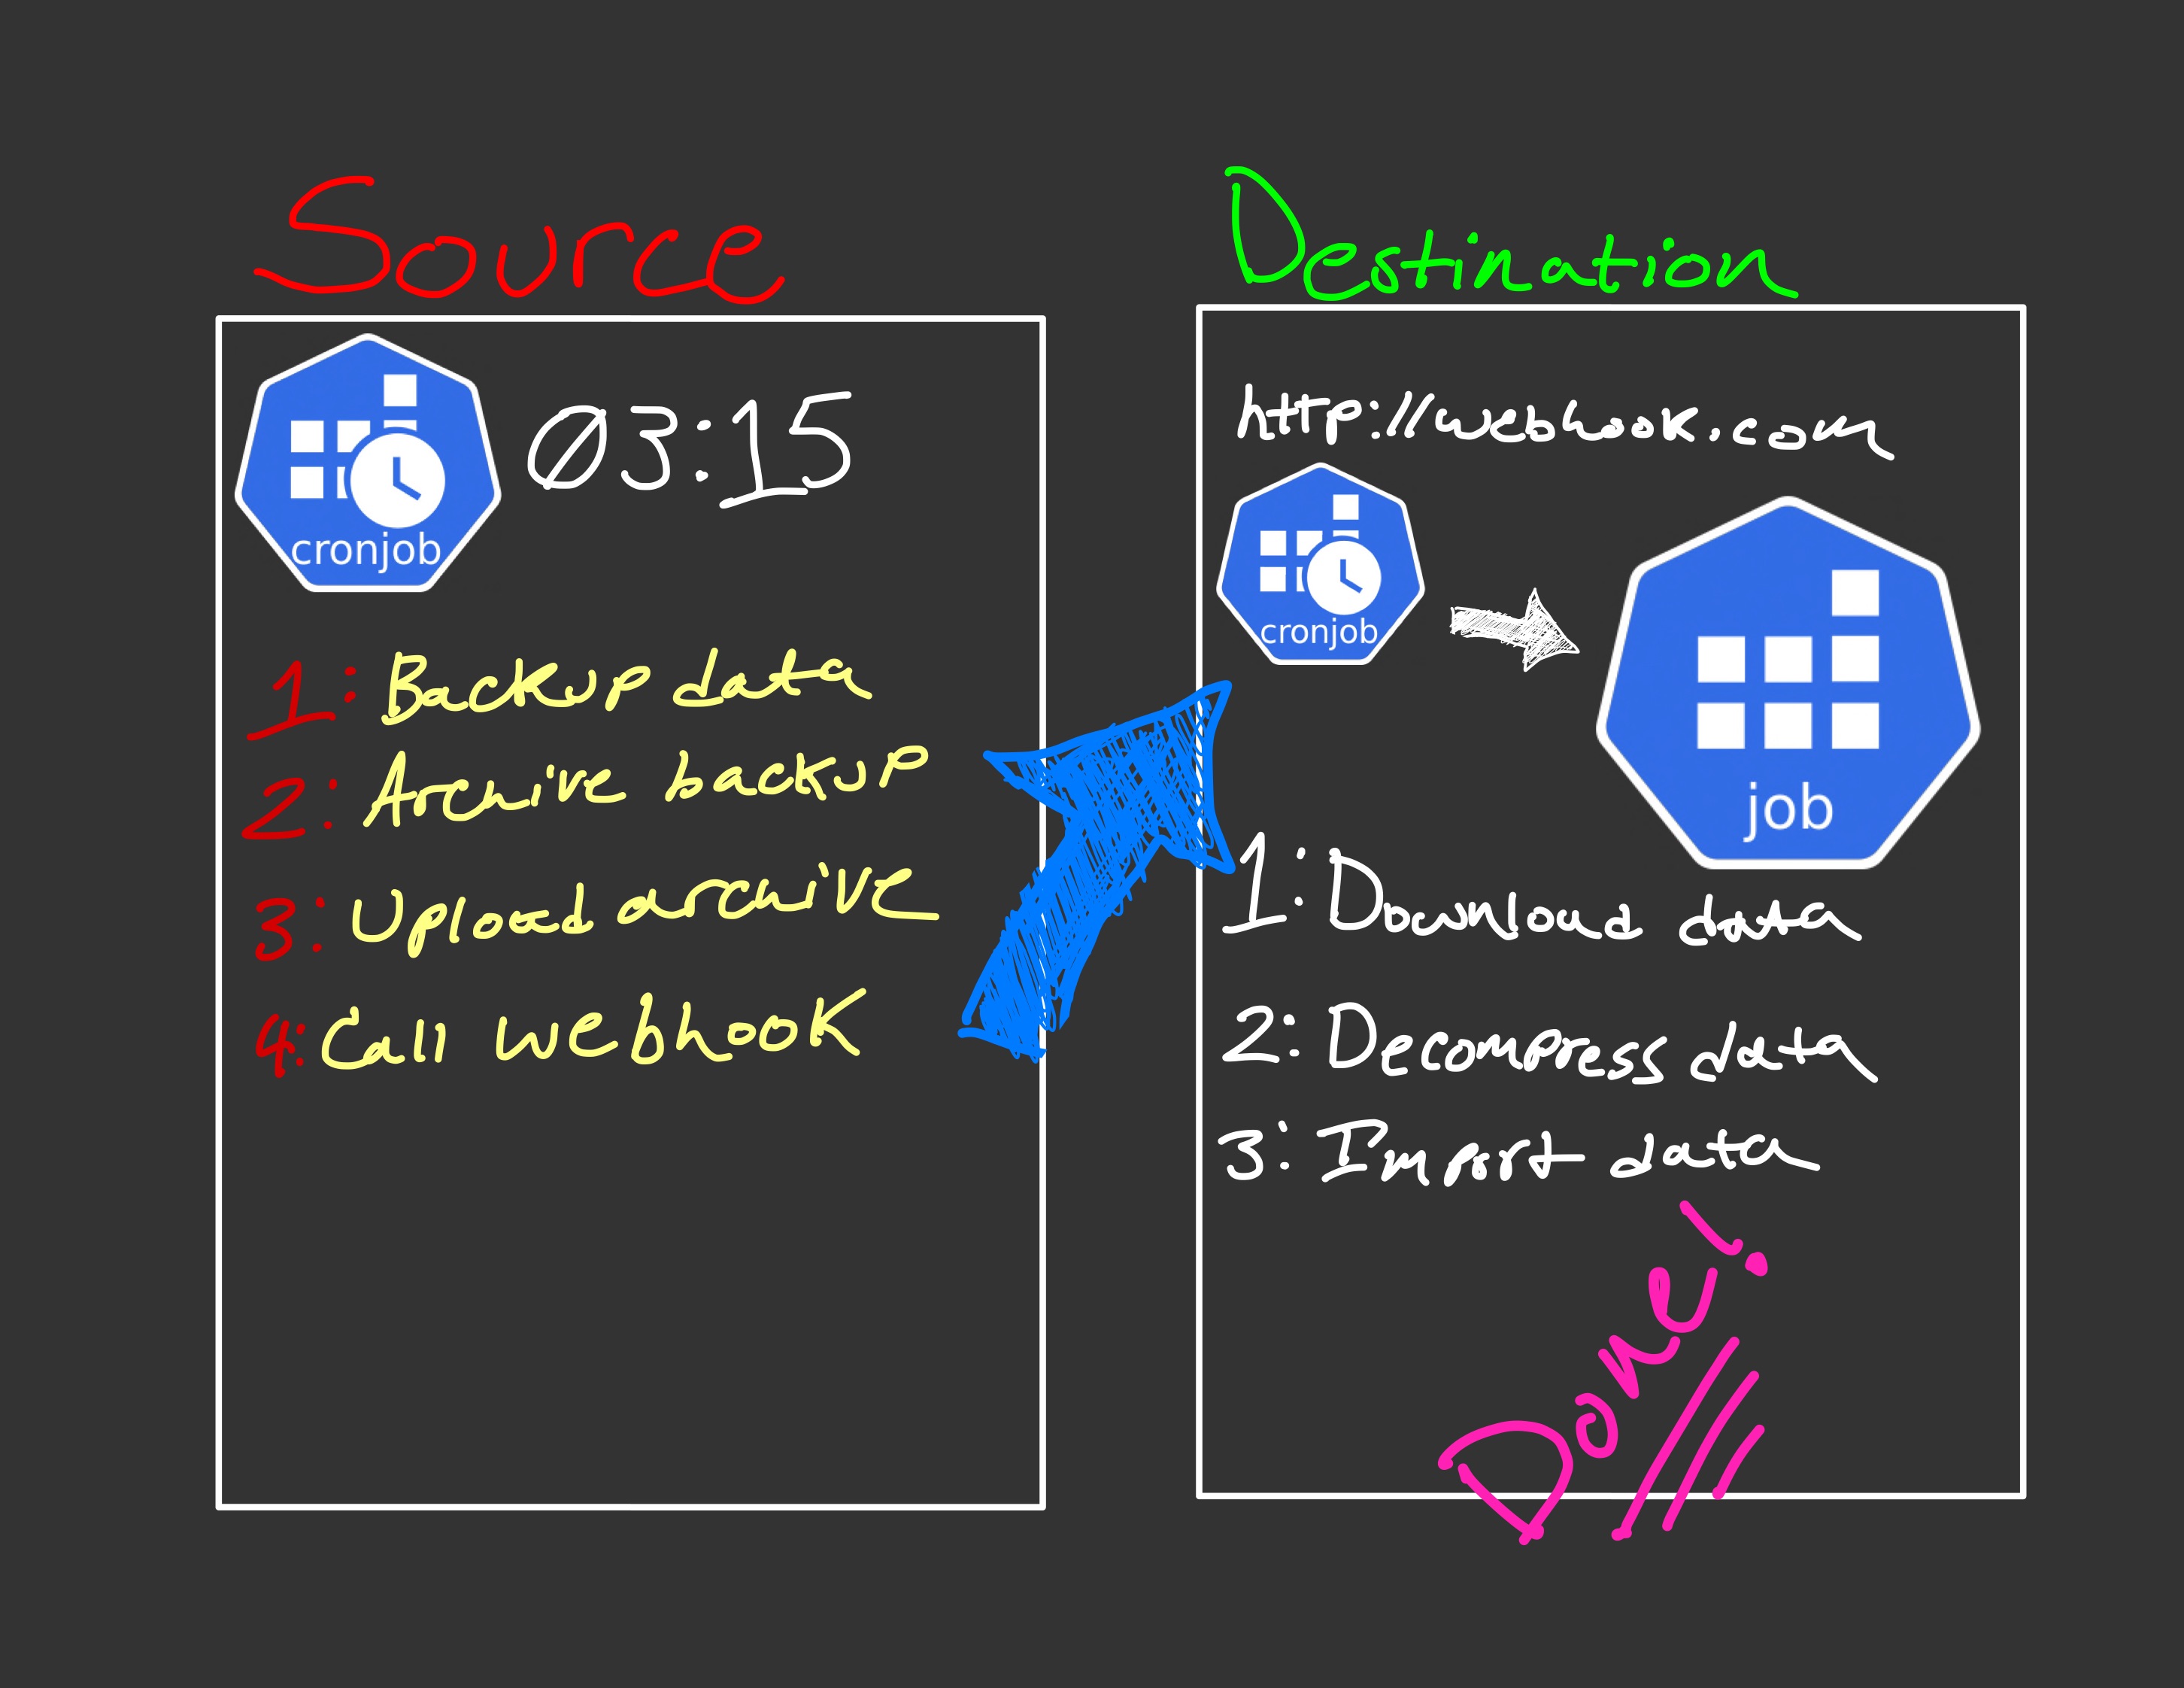 Source
cronjob
03:15
1: Backup data
2: Archive backup
3: Upload archive
4: Call webhook
Destination
http://webhook.com
cronjob
job
1: Download data
2: Decompress data
3: Import data
Done!